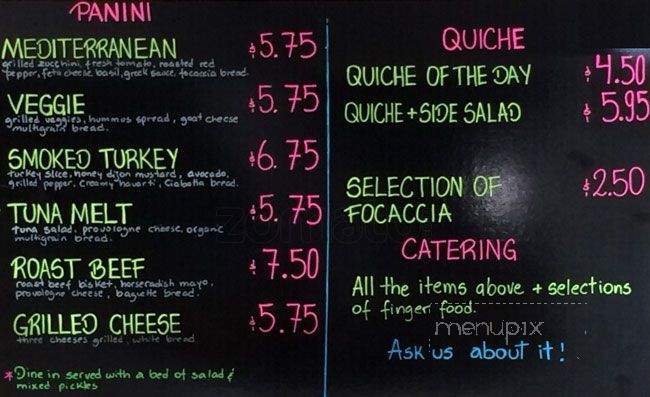 PANINI
MEDITERRANEAN $5.75
grilled zucchini, fresh tomato, roasted red
pepper, feta cheese, basil, greek sauce, focaccia bread.
VEGGIE $5.75
grilled veggies, hummus spread, goat cheese
multigrain bread.
SMOKED TURKEY $6.75
turkey slice, honey dijon mustard, avocado,
grilled pepper, creamy havarti, ciabatta bread.
TUNA MELT $5.75
tuna salad, provologne cheese, organic
multigrain bread.
ROAST BEEF $7.50
roast beef bisket, horseradish mayo,
provologne cheese, baguette bread.
GRILLED CHEESE $5.75
three cheeses grilled, white bread
*Dine in served with a bed of salad &
mixed pickles
QUICHE
QUICHE OF THE DAY $4.50
QUICHE + SIDE SALAD $5.95
SELECTION OF $2.50
FOCACCIA
CATERING
All the items above + selections
of finger food.
menupix
Ask us about it!